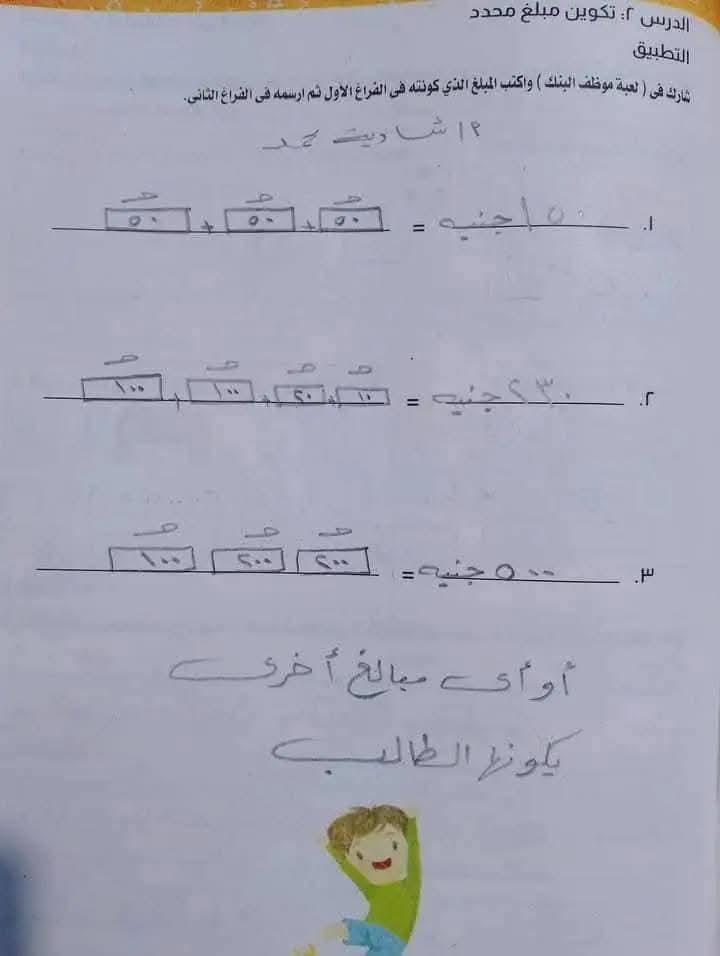 الدرس ٢: تكوين مبلغ محدد
التطبيق
شارك فى ( لعبة موظف البنك ) واكتب المبلغ الذي كونته فى الفراغ الأول ثم ارسمه فى الفراغ الثانى.
١. ١٥٠ جنيه = ٥٠ جـ + ٥٠ جـ + ٥٠ جـ
٢. ٢٣٠ جنيه = ١٠ جـ + ٢٠ جـ + ١٠٠ جـ + ١٠٠ جـ
٣. ٥٠٠ جنيه = ٢٠٠ جـ ٢٠٠ جـ ١٠٠ جـ
أو أى مبالغ أخرى
يكونها الطالب